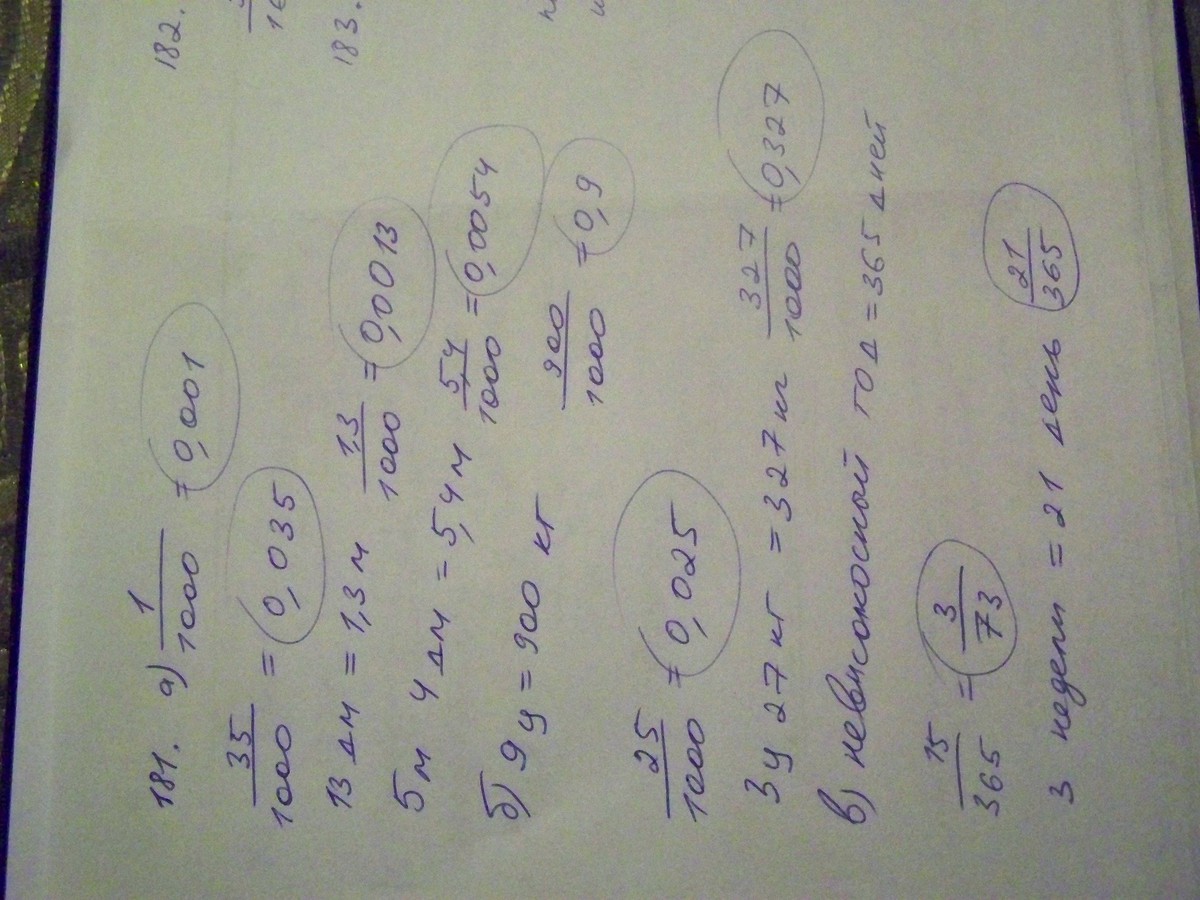 181. а) 1/1000 = 0,001
35/1000 = 0,035
13 дм = 1,3 м 1,3/1000 = 0,0013
5 м 4 дм = 5,4 м 5,4/1000 = 0,0054
б) 9 ц = 900 кг 900/1000 = 0,9
25/1000 = 0,025
3 ц 27 кг = 327 кг 327/1000 = 0,327
в) невисокосный год = 365 дней
15/365 = 3/73
3 недели = 21 день 21/365
182.
183.